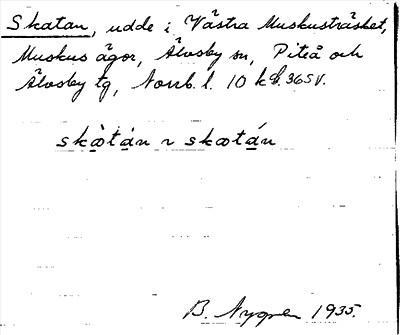 Skatan, udde i Västra Muskusträsket,
Muskus ägor, Älvsby sn, Piteå och
Älvsby tg, Norrb. l. 10 kbl. 365 V.
skàtán ~ skatán
B. Nygren 1935.